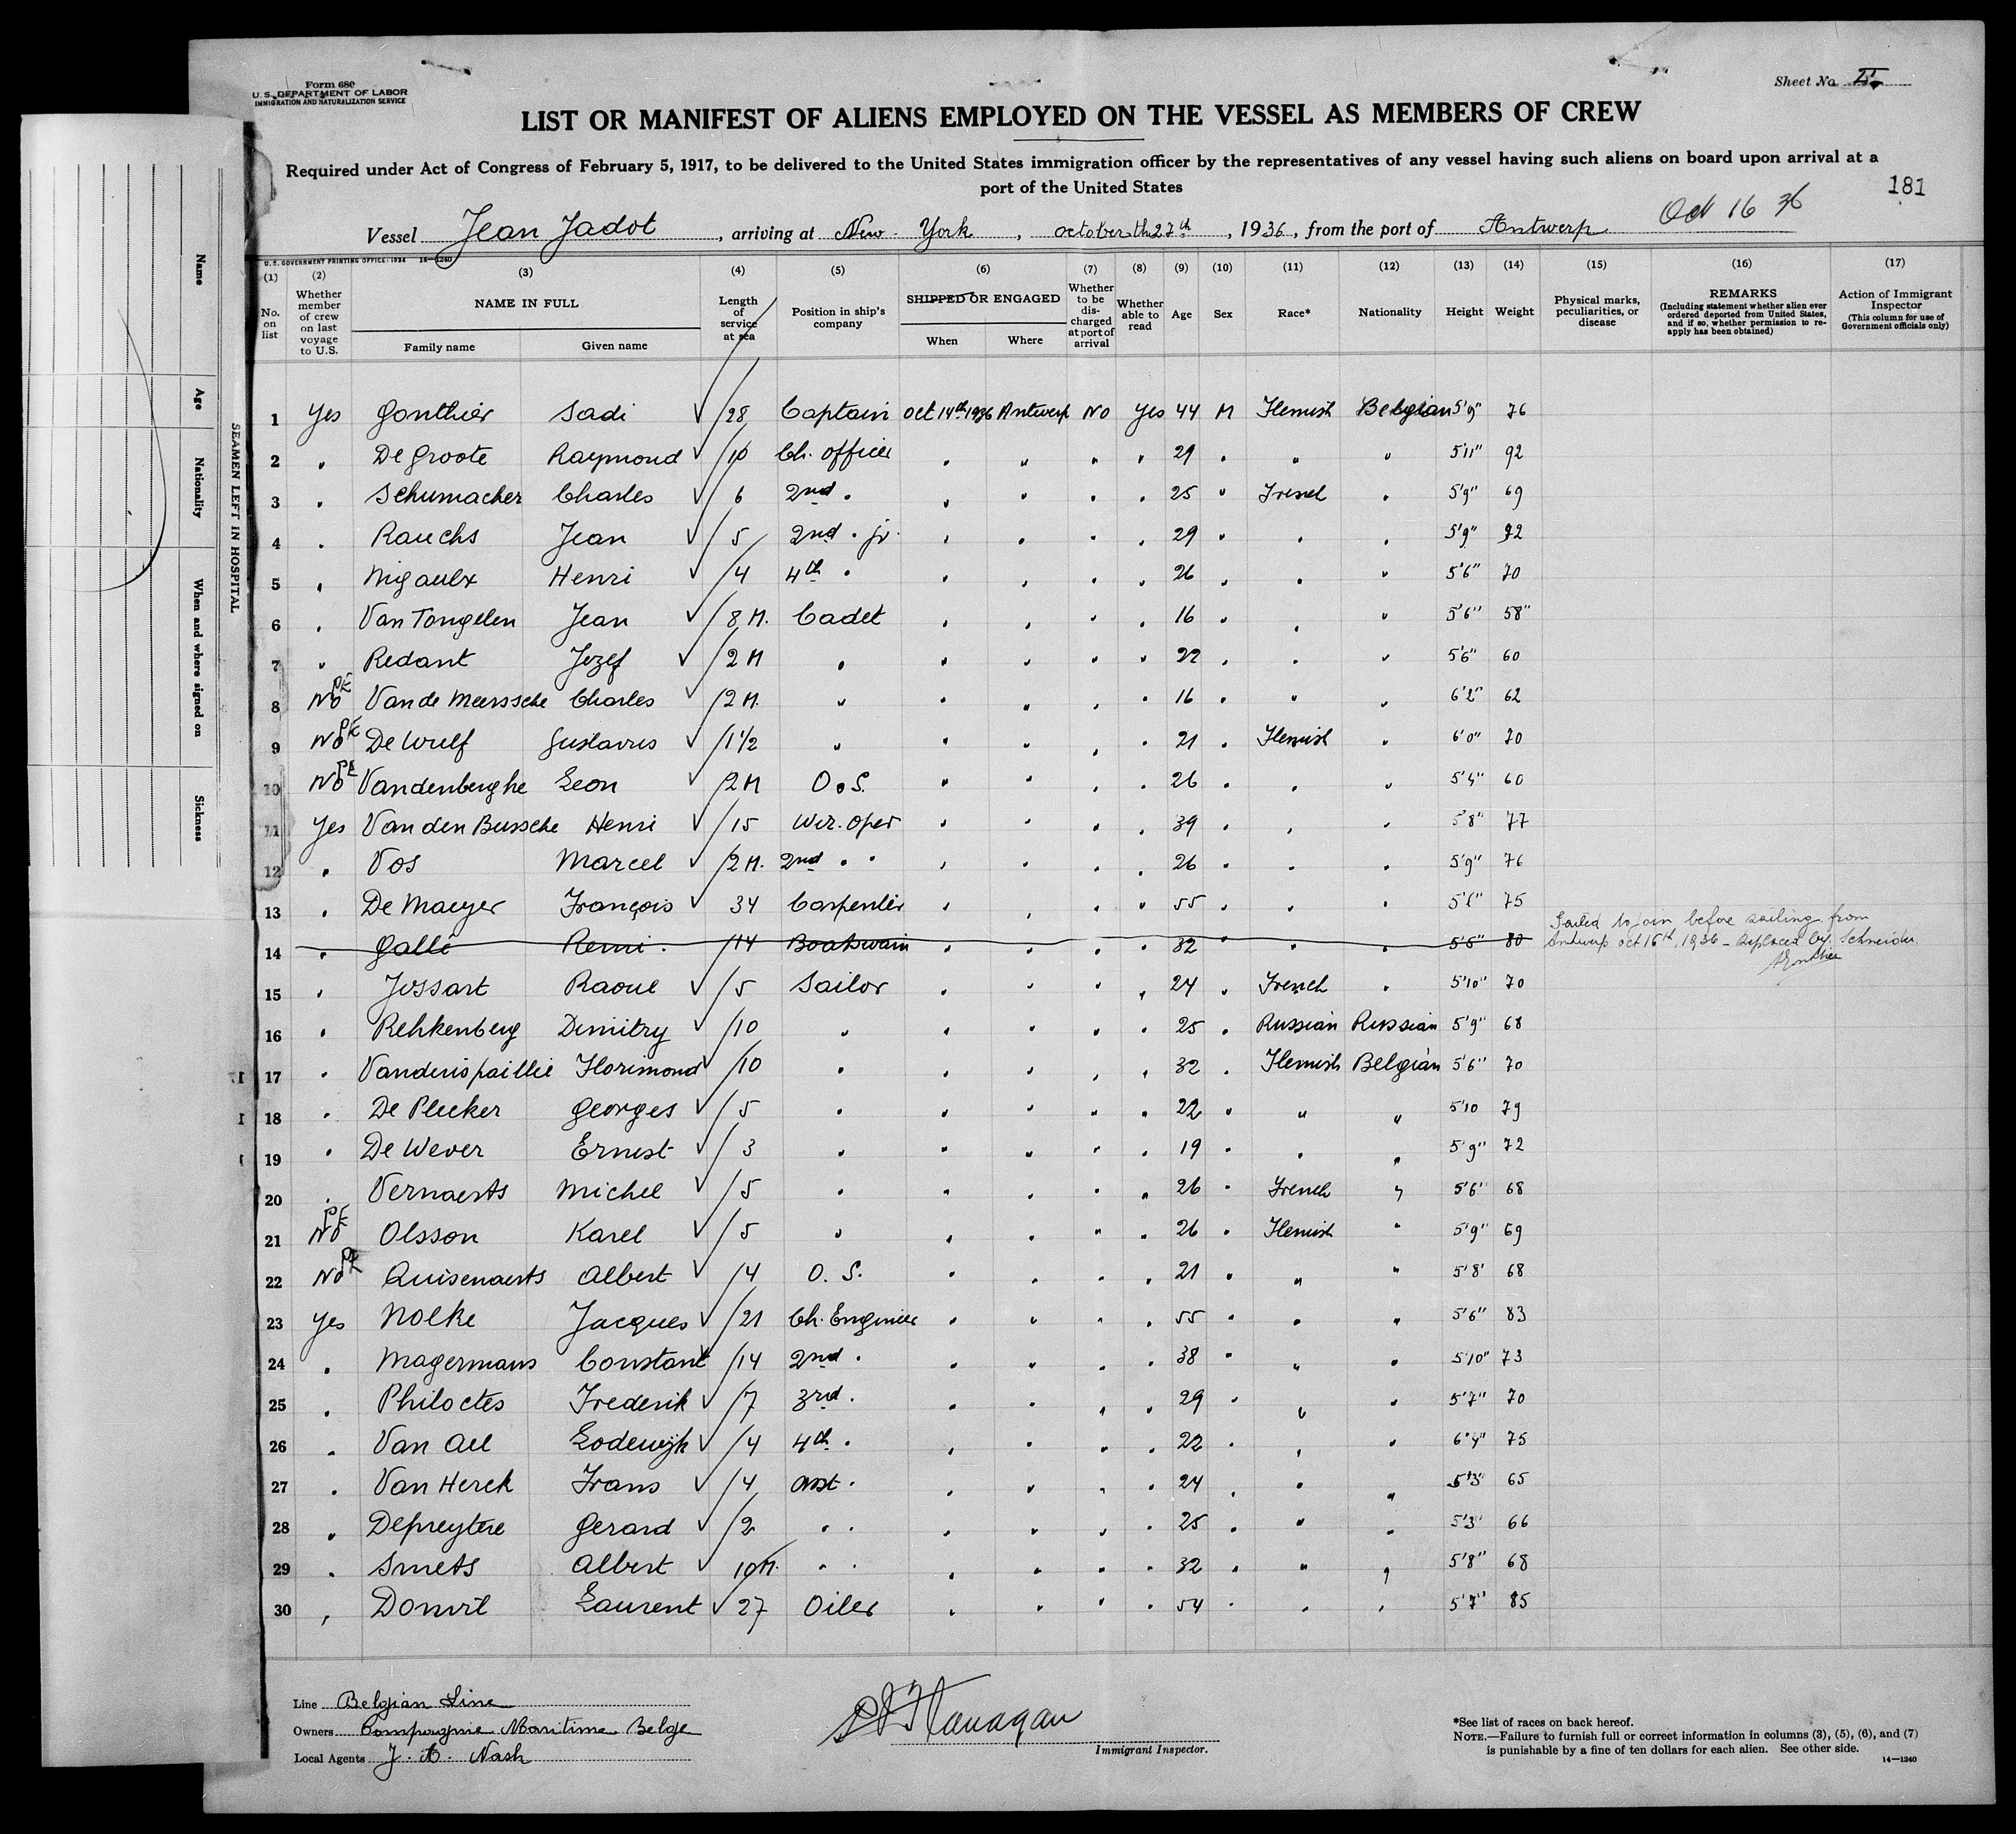 Form 680
U. S. DEPARTMENT OF LABOR
IMMIGRATION AND NATURALIZATION SERVICE
Sheet No. II
LIST OR MANIFEST OF ALIENS EMPLOYED ON THE VESSEL AS MEMBERS OF CREW
Required under Act of Congress of February 5, 1917, to be delivered to the United States immigration officer by the representatives of any vessel having such aliens on board upon arrival at a
port of the United States
181
Oct 16 36
Vessel Jean Jadot, arriving at New York, october th 27th, 1936, from the port of Antwerp
U. S. GOVERNMENT PRINTING OFFICE: 1934 14—1240
(1) (2) (3) (4) (5) (6) (7) (8) (9) (10) (11) (12) (13) (14) (15) (16) (17)
No. on list
Whether member of crew on last voyage to U.S.
NAME IN FULL
Family name Given name
Length of service at sea
Position in ship's company
SHIPPED OR ENGAGED
When Where
Whether to be discharged at port of arrival
Whether able to read
Age
Sex
Race*
Nationality
Height
Weight
Physical marks, peculiarities, or disease
REMARKS
(Including statement whether alien ever ordered deported from United States, and if so, whether permission to reapply has been obtained)
Action of Immigrant Inspector
(This column for use of Government officials only)
1 Yes Gonthier Sadi √ 28 Captain Oct 14th 1936 Antwerp No Yes 44 M Flemish Belgian 5'9" 76
2 " De Groote Raymond √ 10 Ch. Officer " " " " 29 " " " 5'11" 92
3 " Schumacher Charles √ 6 2nd " " " " " 25 " French " 5'9" 69
4 " Rauchs Jean √ 5 2nd " jr. " " " " 29 " " " 5'9" 92
5 " Nigaulx Henri √ 4 4th " " " " " 26 " " " 5'6" 70
6 " Van Tongelen Jean √ 8 M. Cadet " " " " 16 " " " 5'6" 58"
7 " Redant Jozef √ 2 M " " " " " 22 " " " 5'6" 60
8 No Van de Meerssche Charles √ 2 M. " " " " " 16 " " " 6'2" 62
9 No De Wulf Gustavus √ 1 1/2 " " " " " 21 " Flemish " 6'0" 70
10 No Vandenberghe Leon √ 2 M O.S. " " " " 26 " " " 5'4" 60
11 Yes Van den Bussche Henri √ 15 Wir. Oper " " " " 39 " " " 5'8" 77
12 " Vos Marcel √ 2 M. 2nd " " " " " " 26 " " " 5'9" 76
13 " De Maeyer François √ 34 Carpenter " " " " 55 " " " 75
14 " Gallé Remi. 14 Boatswain " " " " 32 " " " 5'5" 80
Failed to join before sailing from
Antwerp oct 16th, 1936 – Replaced by Schneider.
SGonthier
15 " Jossart Raoul √ 5 Sailor " " " " 24 " French " 5'10" 70
16 " Rehkenberg Dimitry √ 10 " " " " " 25 " Russian Russian 5'9" 68
17 " Vanderispaillie Florimond √ 10 " " " " " 32 " Flemish Belgian 5'6" 70
18 " De Plecker Georges √ 5 " " " " " 22 " " " 5'10 79
19 " De Wever Ernest √ 3 " " " " " 19 " " " 5'9" 72
20 " Vernaerts Michel √ 5 " " " " " 26 " French " 5'6" 68
21 No Olsson Karel √ 5 " " " " " 26 " Flemish " 5'9" 69
22 No Quisenaerts Albert √ 4 O. S. " " " " 21 " " " 5'8' 68
23 Yes Nolke Jacques √ 21 Ch. Engineer " " " " 55 " " " 5'6" 83
24 " Magermans Constant √ 14 2nd " " " " " 38 " " " 5'10" 73
25 " Philoctes Frederik √ 7 3rd " " " " " 29 " " " 5'7" 70
26 " Van Ael Lodewijk √ 4 4th " " " " " 22 " " " 6'4" 75
27 " Van Herck Frans √ 4 asst " " " " " 24 " " " 5'3" 65
28 " Depreytere Gerard √ 2 " " " " " " 25 " " " 5'3" 66
29 " Smets Albert √ 10 M. " " " " " " 32 " " " 5'8" 68
30 " Donvil Laurent √ 27 Oiler " " " " 54 " " " 5'7" 85
Line Belgian Line
Owners Compagnie Maritime Belge
Local Agents J. B. Nash
Flanagan
Immigrant Inspector.
*See list of races on back hereof.
NOTE.—Failure to furnish full or correct information in columns (3), (5), (6), and (7)
is punishable by a fine of ten dollars for each alien. See other side.
14—1240
SEAMEN LEFT IN HOSPITAL
Name
Age
Nationality
When and where signed on
Sickness